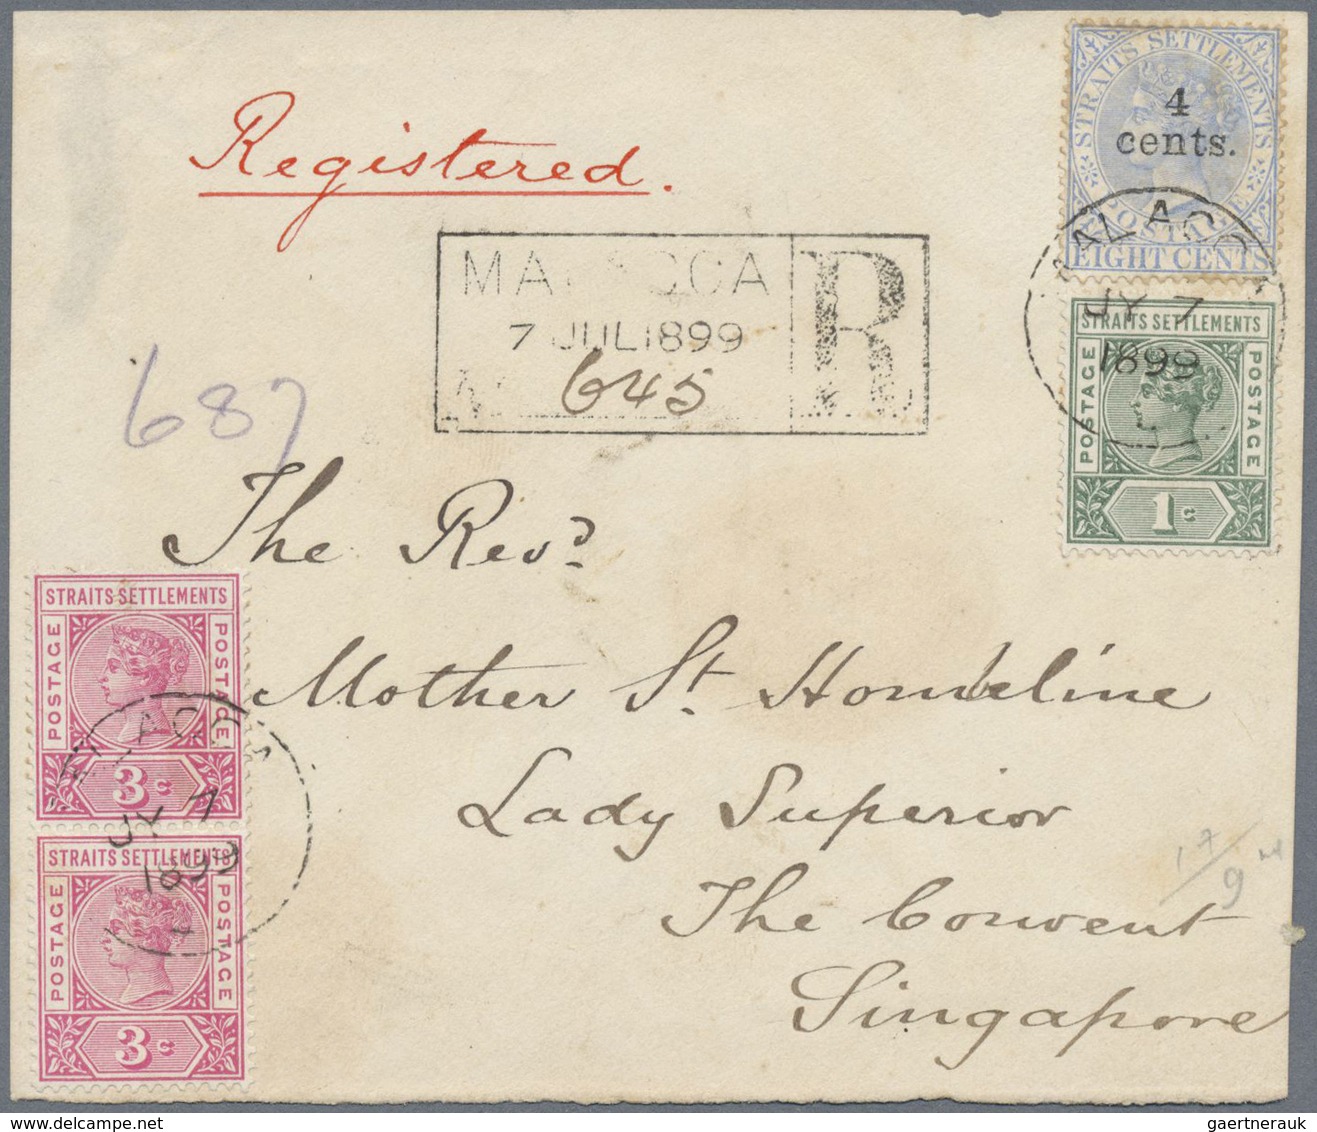 Registered.
STRAITS SETTLEMENTS
4
cents.
POSTAGE
EIGHT CENTS
MALACCA
JY 7
1899
MALACCA R
7 JUL 1899
645
687
STRAITS SETTLEMENTS
POSTAGE POSTAGE
1c
The Revd
Mother St. Hombeline
Lady Superior
The Convent
Singapore
STRAITS SETTLEMENTS
POSTAGE POSTAGE
3c
MALACCA
JY 7
1899
STRAITS SETTLEMENTS
POSTAGE POSTAGE
3c
17/9
gaertnerauk